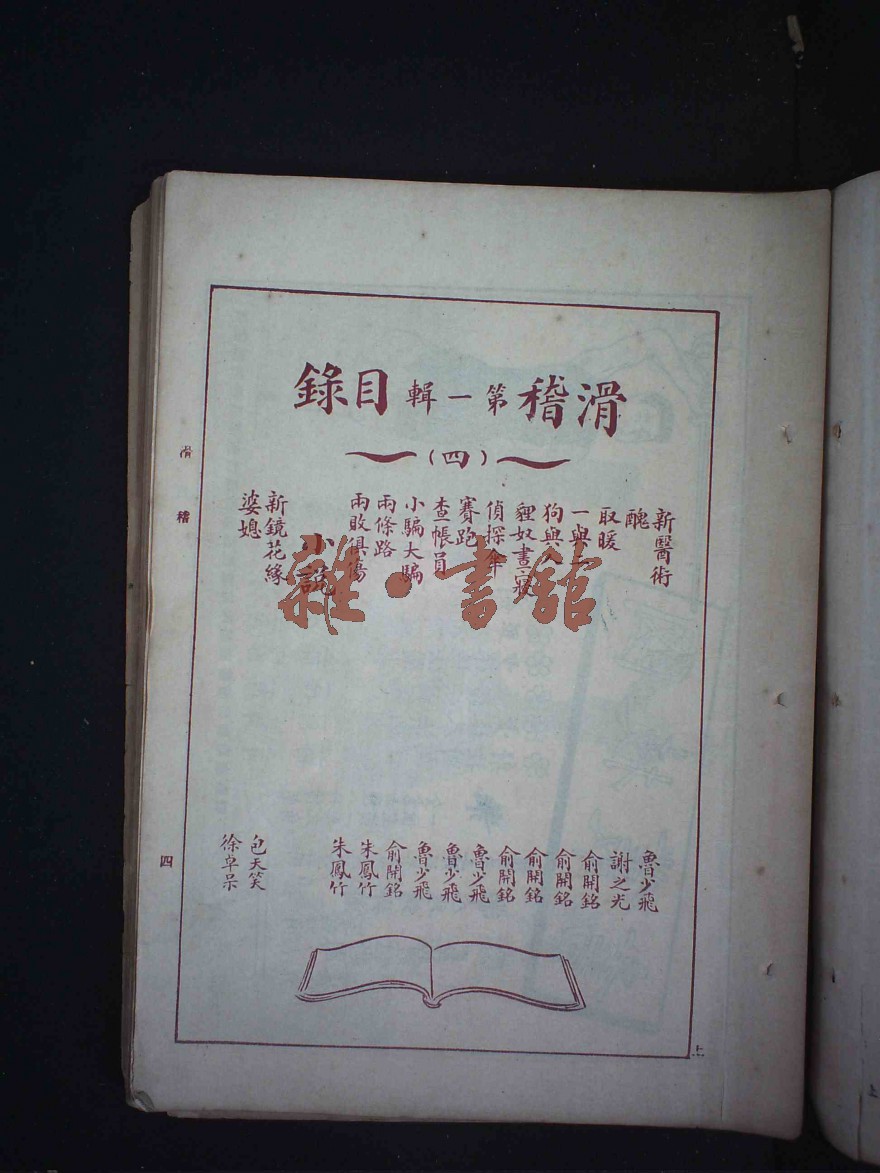 滑稽第一輯目錄
(四)
新醫術
醜
取暖
一與
狗與人
貍奴晝寢
偵探
賽跑
查帳員
小騙大騙
兩條路
兩敗俱傷
小說
新鏡花緣
婆媳
魯少飛
謝之光
俞開銘
俞開銘
俞開銘
俞開銘
魯少飛
魯少飛
魯少飛
俞開銘
朱鳳竹
朱鳳竹
包天笑
徐卓呆
滑稽
四
上
上
雜·書館